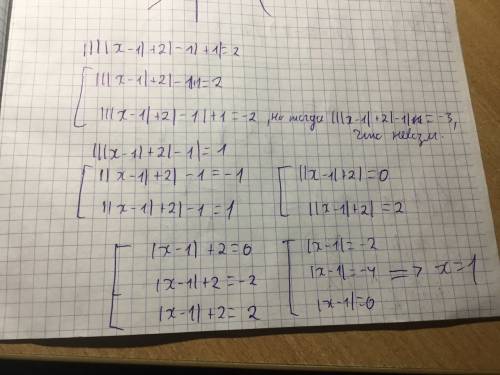 ||||x-1|+2|-1|+1|=2
|||x-1|+2|-1|+1=2
|||x-1|+2|-1|+1=-2, но тогда |||x-1|+2|-1|=-3,
что невозм.
|||x-1|+2|-1|=1
||x-1|+2|-1=-1 ||x-1|+2|=0
||x-1|+2|-1=1 ||x-1|+2|=2
|x-1|+2=0 |x-1|=-2
|x-1|+2=-2 |x-1|=-4 => x=1
|x-1|+2=2 |x-1|=0